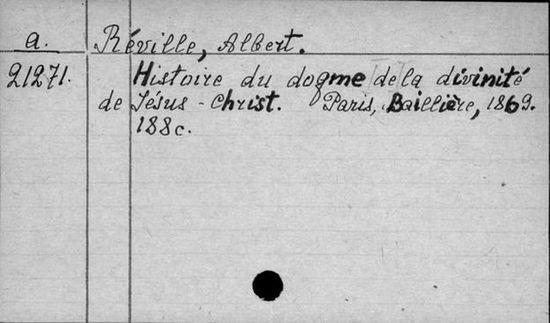 a. Réville, Albert.
21271. Histoire du dogme de la divinité
de Jésus-Christ. Paris, Baillière, 1869.
188c.